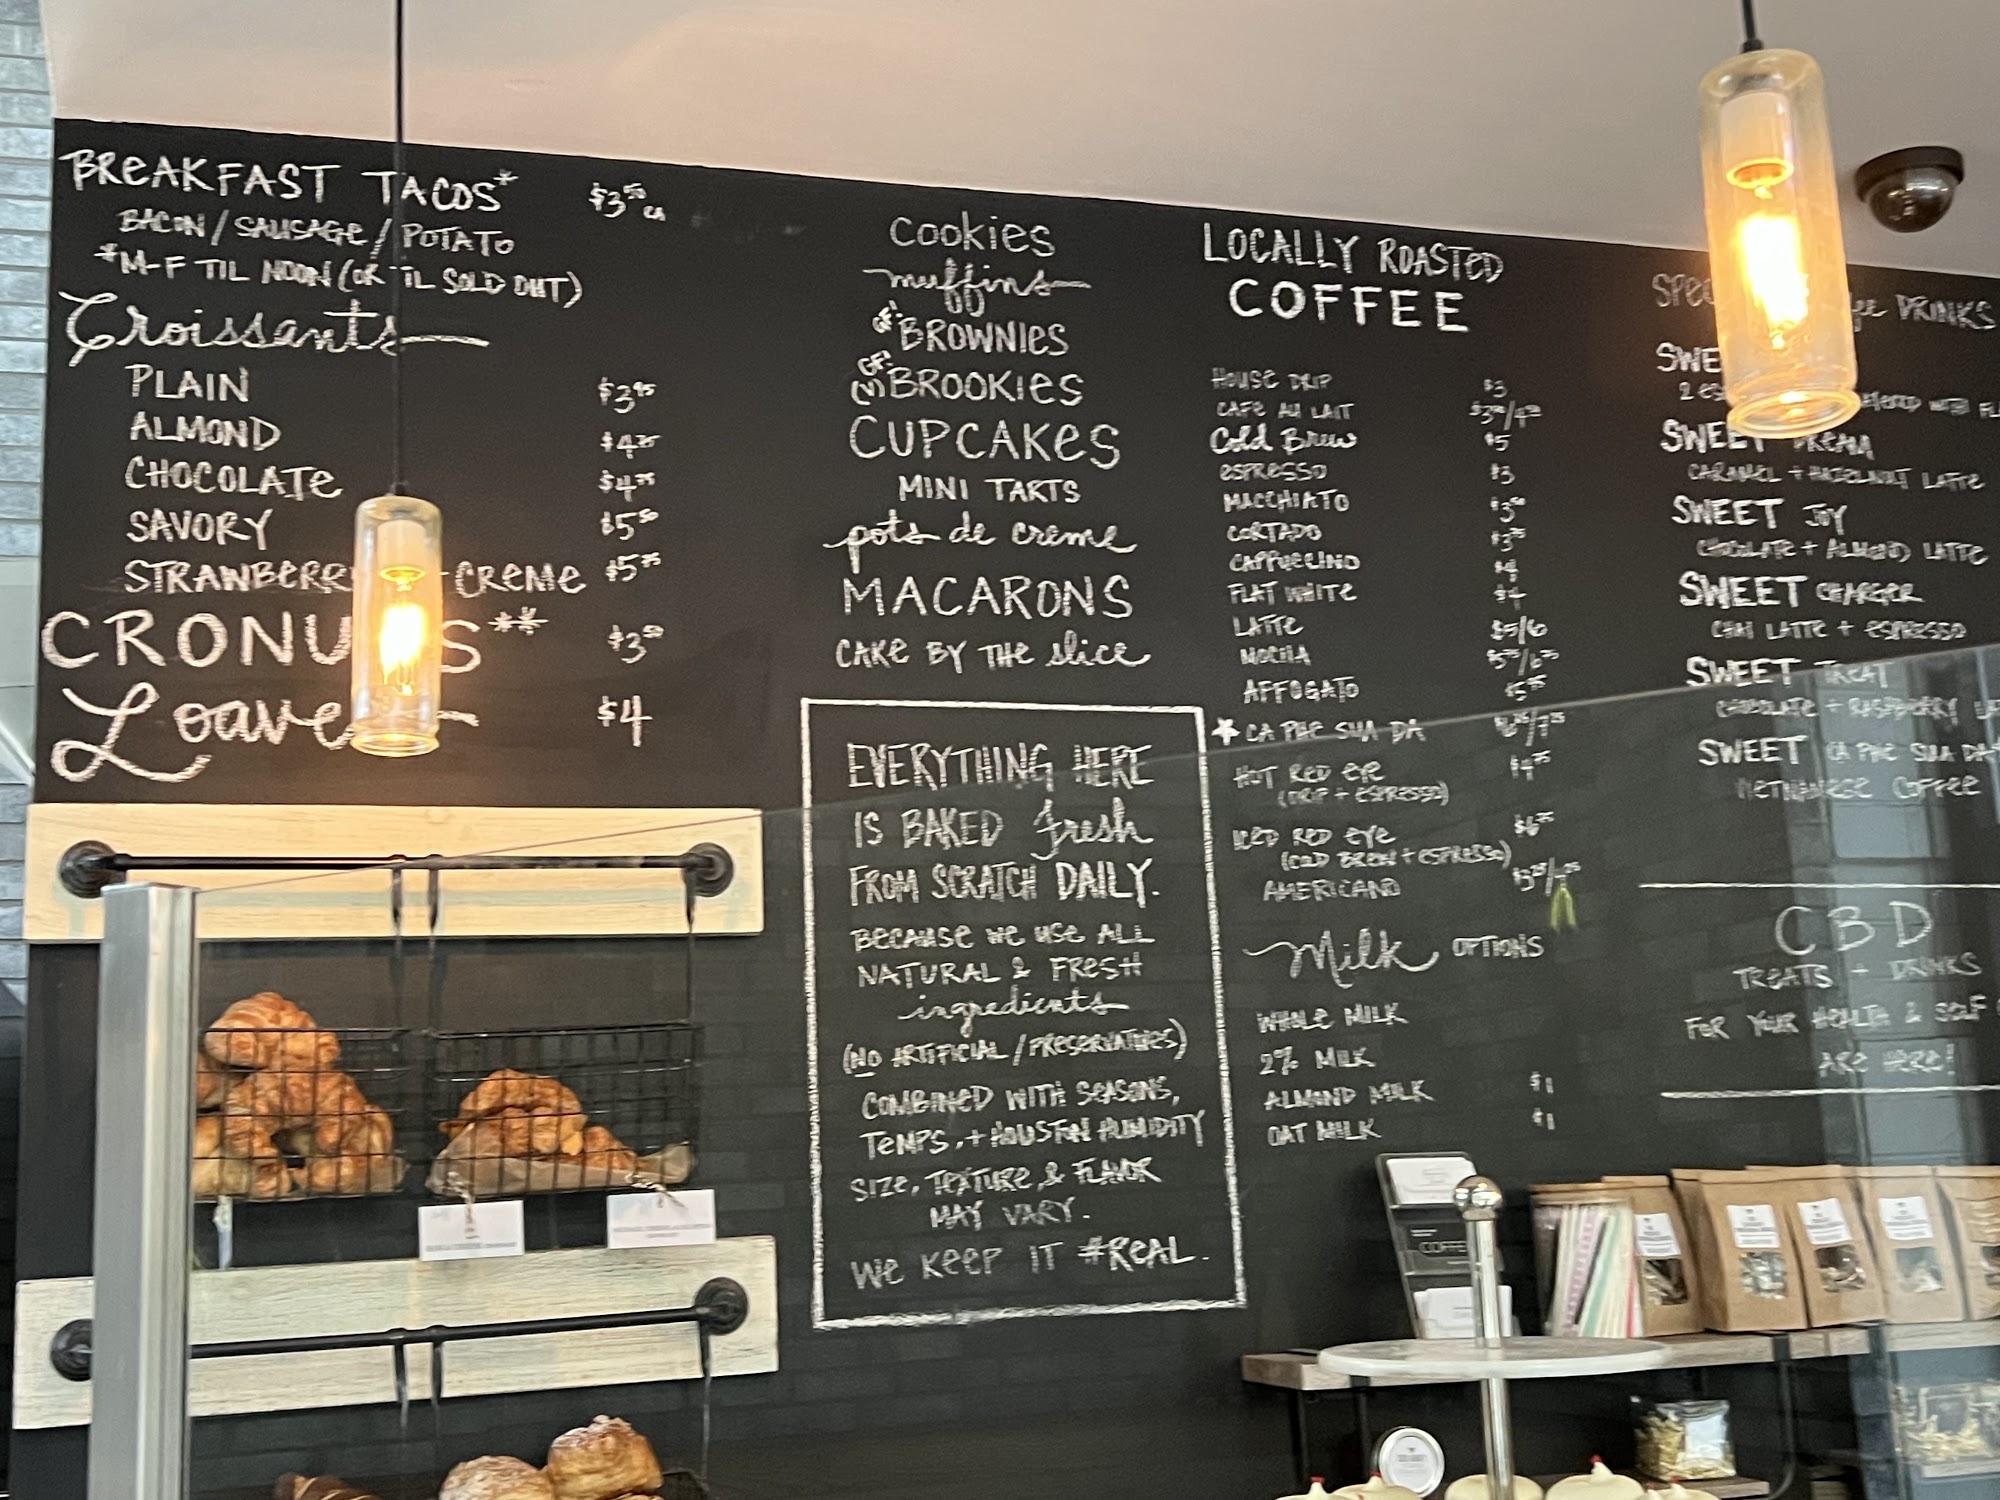 BREAKFAST TACOS* $3.50 ea
BACON/SAUSAGE/POTATO
*M-F TIL NOON (OR TIL SOLD OUT)
Croissants
PLAIN $3.95
ALMOND $4.25
CHOCOLATE $4.25
SAVORY $5.50
+ CREME $5.75
** $3.50
$4
COOKIES
muffins
GF: BROWNIES
GF: BROOKIES
CUPCAKES
MINI TARTS
pots de creme
MACARONS
CAKE BY THE slice
EVERYTHING HERE
IS BAKED fresh
FROM SCRATCH DAILY.
BECAUSE WE USE ALL
NATURAL & FRESH
ingredients
(NO ARTIFICIAL/PRESERVATIVES)
COMBINED WITH SEASONS,
TEMPS, + HOUSTON HUMIDITY
SIZE, TEXTURE, & FLAVOR
MAY VARY.
WE KEEP IT #REAL.
LOCALLY ROASTED
COFFEE
HOUSE DRIP $3
CAFE AU LAIT
COLD BREW $5
ESPRESSO $3
MACCHIATO $3.50
CORTADO $3.75
CAPPUCCINO $4
FLAT WHITE $4
LATTE $5/6
MOCHA $5.75/6.75
AFFOGATO $5.75
CA PHE SUA DA
HOT RED EYE $4.75
(DRIP + ESPRESSO)
ICED RED EYE $6.75
(COLD BREW + ESPRESSO)
AMERICANO
Milk OPTIONS
WHOLE MILK
2% MILK
ALMOND MILK $1
OAT MILK $1
DRINKS
SWEET DREAM
CARAMEL + HAZELNUT LATTE
SWEET JOY
CHOCOLATE + ALMOND LATTE
SWEET CHARGER
CHAI LATTE + ESPRESSO
SWEET TREAT
CHOCOLATE + RASPBERRY
SWEET CA PHE SUA DA
VIETNAMESE COFFEE
CBD
TREATS + DRINKS
FOR YOUR HEALTH & SELF
ARE HERE!